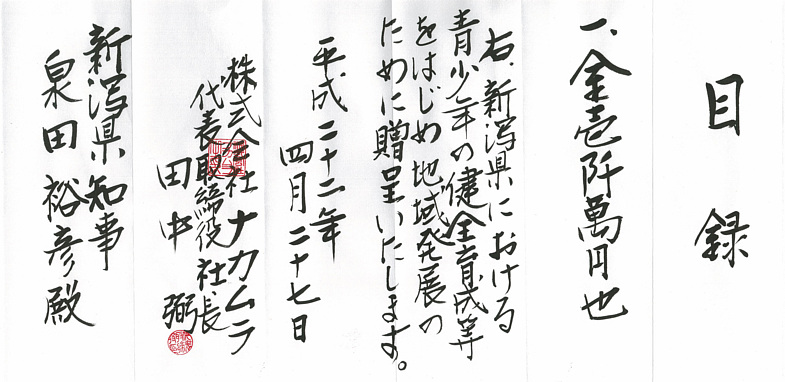 目録
一、金壱阡萬円也
右、新潟県における
青少年の健全育成等
をはじめ地域発展の
ために贈呈いたします。
平成二十二年
四月二十七日
株式会社ナカムラ
代表取締役社長
田中 弼
新潟県知事
泉田裕彦殿